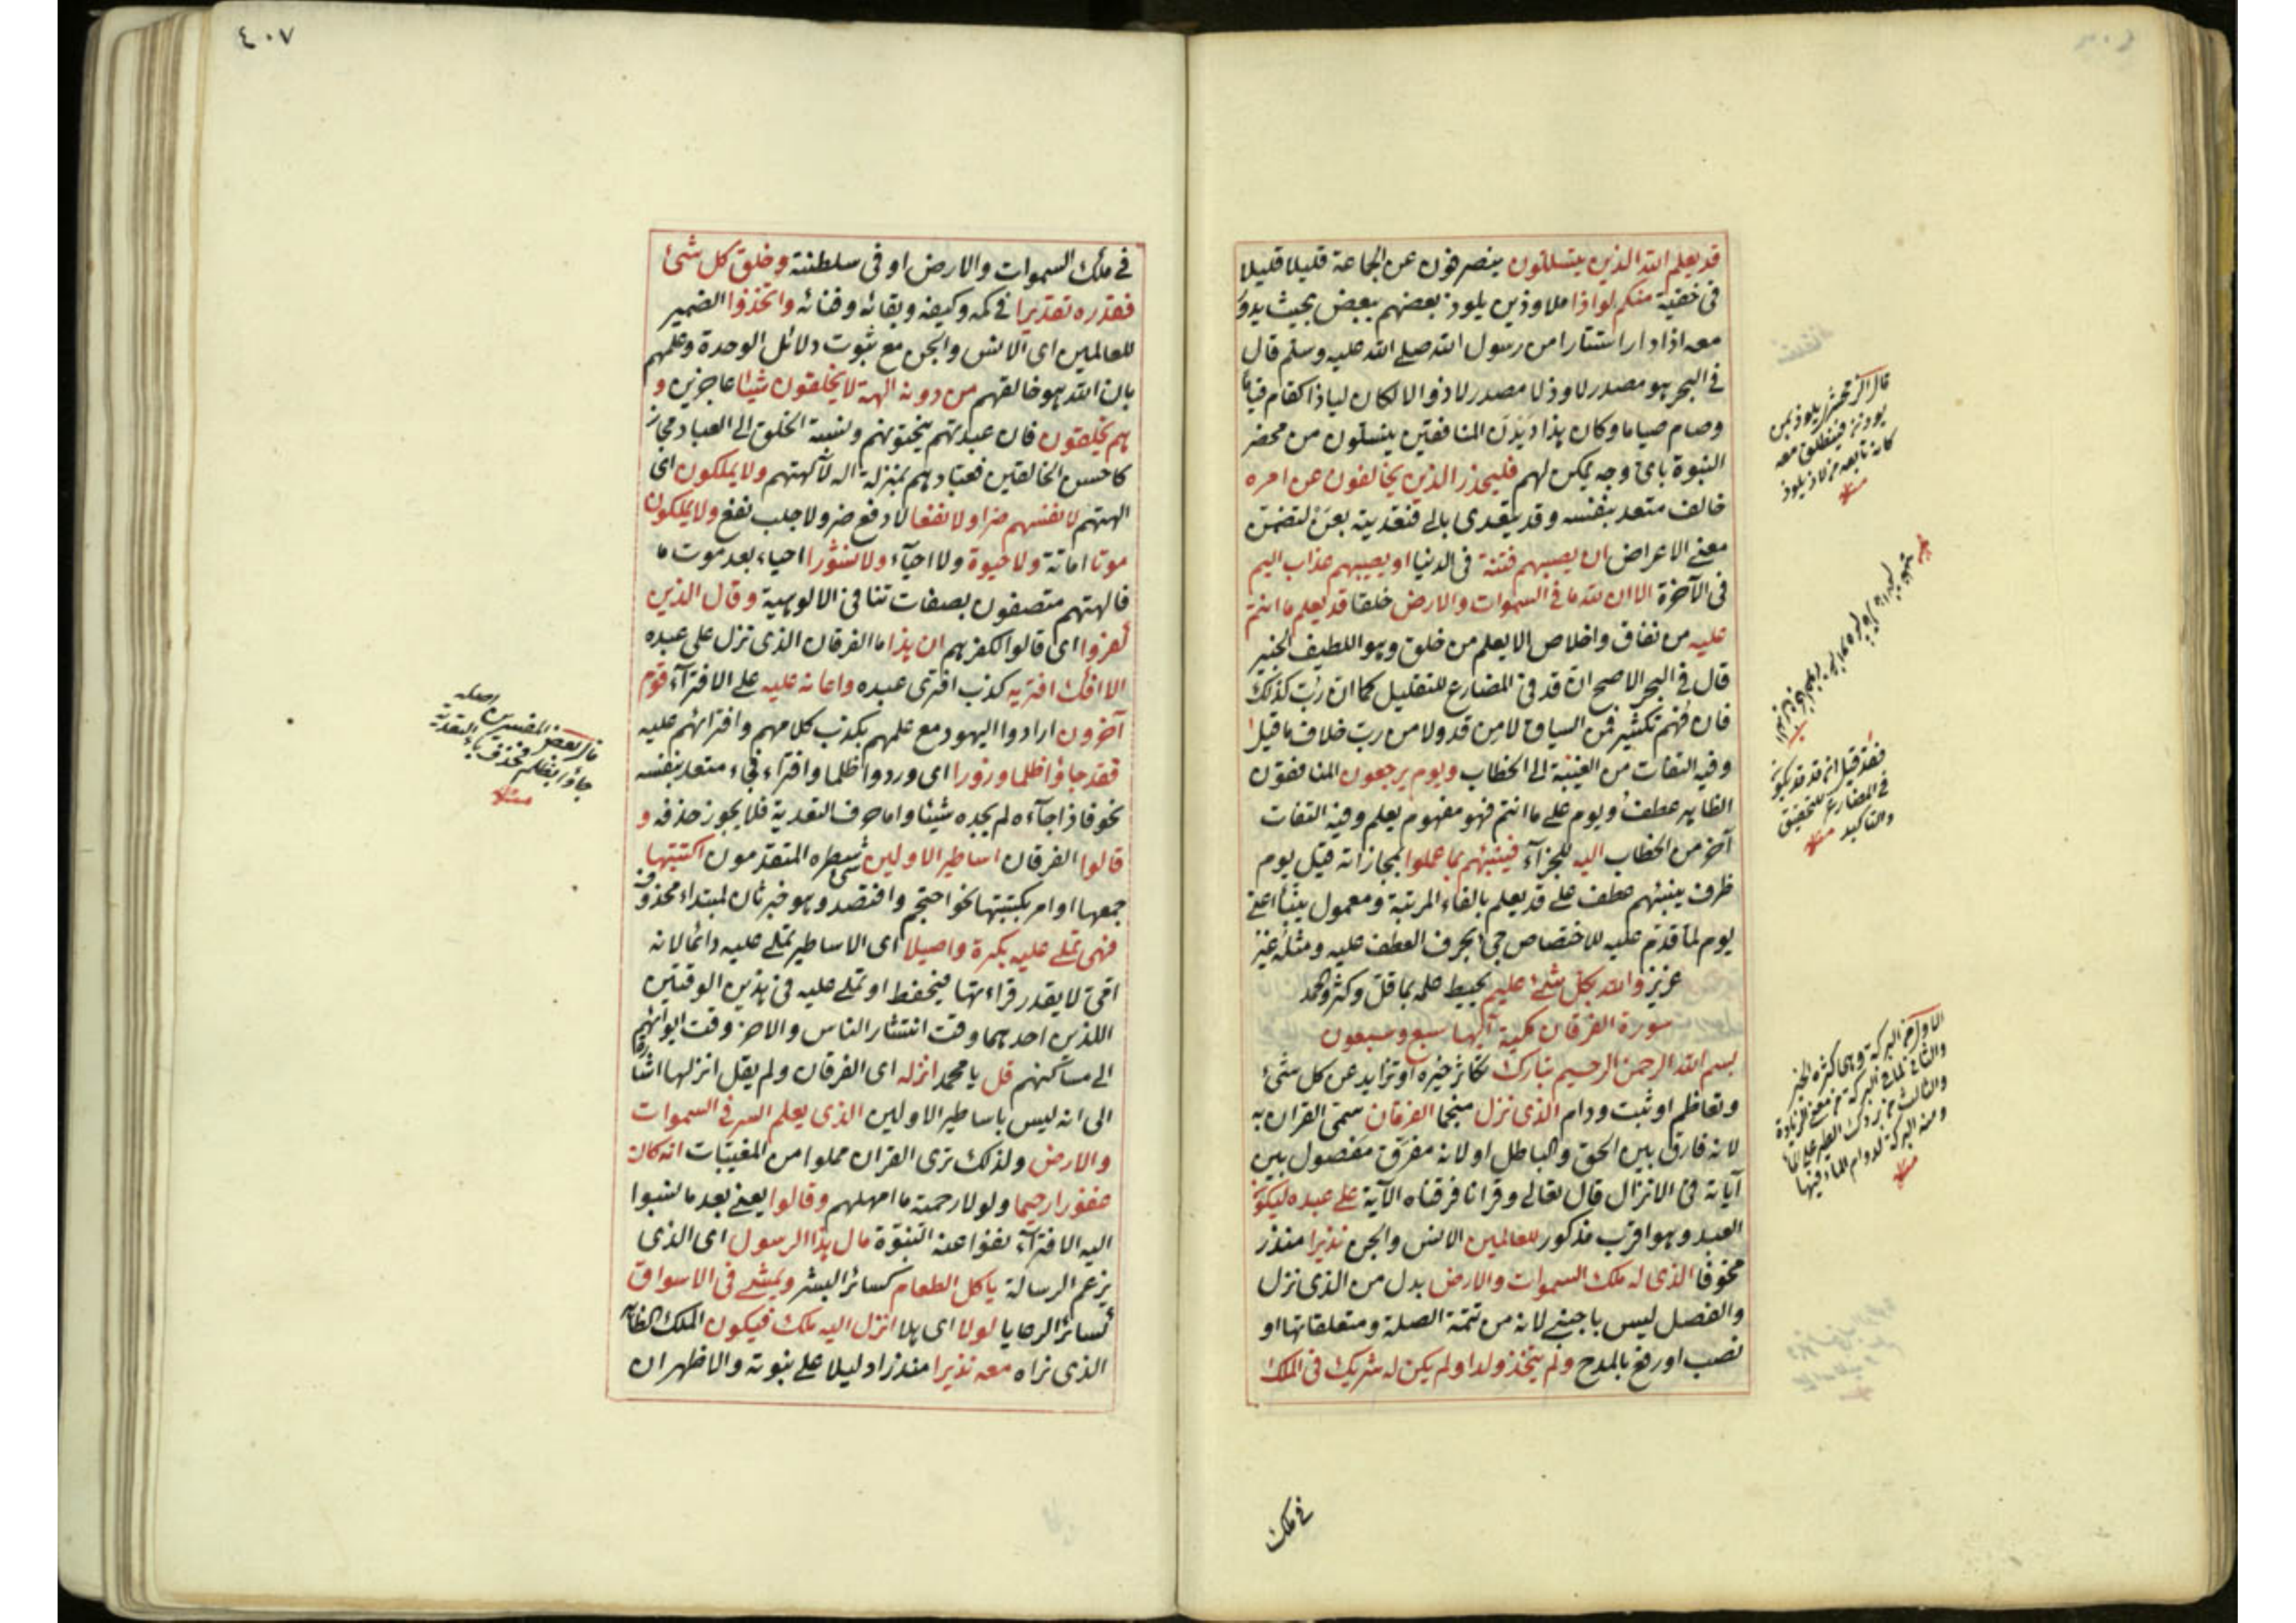 قد يعلم الله الذين يتسللون ينصرفون عن الجماعة قليلا قليلا
فى خفية منكم لواذا ملاوذين يلوذ بعضهم ببعض بحيث يدور
معه اذا دار استتارا من رسول الله صلى الله عليه وسلم قال
فى البحر هو مصدر لاوذ لا مصدر لاذ والا لكان لياذا كقام قياما
وصام صياما وكان هذا ديدن المنافقين ينسلون من محضر
النبوة باى وجه يمكن لهم فليحذر الذين يخالفون عن امره
خالف متعد بنفسه وقد يتعدى بالى فتعديته بعن لتضمن
معنى الاعراض ان يصيبهم فتنة فى الدنيا او يصيبهم عذاب اليم
فى الآخرة الا ان لله ما فى السموات والارض خلقا قد يعلم ما انتم
عليه من نفاق واخلاص الا يعلم من خلق وهو اللطيف الخبير
قال فى البحر الاصح ان قد فى المضارع للتقليل كما ان رب كذلك
فان فهم تكثير فمن السياق لا من قد ولا من رب خلاف ما قيل
وفيه التفات من الغيبة الى الخطاب ويوم يرجعون المنافقون
الظاهر عطف ويوم على ما انتم فهو مفهوم يعلم وفيه التفات
آخر من الخطاب اليه للجزآء فينبئهم بما عملوا بمجازاته قيل يوم
ظرف ينبئهم عطف على قد يعلم بالفاء المرتبة ومعمول ينبأ اعنى
يوم لما قدم عليه للاختصاص جئ بحرف العطف عليه ومثله غير
عزيز والله بكل شئ عليم يحيط علمه بما قل وكثر والحمد
سورة الفرقان مكية آيها سبع وسبعون
بسم الله الرحمن الرحيم تبارك تكاثر خيره او تزايد عن كل شئ
وتعاظم او ثبت ودام الذى نزل منجما الفرقان سمى القران به
لانه فارق بين الحق والباطل او لانه مفرق مفصول بين
آياته فى الانزال قال تعالى وقرانا فرقناه الآية على عبده ليكون
العبد وهو اقرب مذكور للعالمين الانس والجن نذيرا منذر
مخوفا الذى له ملك السموات والارض بدل من الذى نزل
والفصل ليس باجنبى لانه من تتمة الصلة ومتعلقاتها او
نصب او رفع بالمدح ولم يتخذ ولدا ولم يكن له شريك فى الملك
فى ملك
فقد قيل انه قد يكون
فى المضارع للتحقيق
والتاكيد منه
٤٠٧
فى ملك السموات والارض او فى سلطنته وخلق كل شئ
فقدره تقديرا فى كمه وكيفه وبقائه وفنائه واتخذوا الضمير
للعالمين اى الانس والجن مع ثبوت دلائل الوحدة وعلمهم
بان الله هو خالقهم من دونه الهة لا يخلقون شيئا عاجزين و
هم يخلقون فان عبدتهم ينحتونهم ونسبة الخلق الى العباد مجاز
كاحسن الخالقين فعبادهم بمنزلة اله لآلهتهم ولا يملكون اى
الهتهم لانفسهم ضرا ولا نفعا لا دفع ضر ولا جلب نفع ولا يملكون
موتا اماتة ولا حيوة ولا احيآء ولا نشورا احياء بعد موت ما
فالهتهم متصفون بصفات تنافى الالوهية وقال الذين
كفروا اى قالوا لكفرهم ان هذا ما الفرقان الذى نزل على عبده
الا افك افتريه كذب افترى عبده واعانه عليه على الافترآء قوم
آخرون ارادوا اليهود مع علمهم بكذب كلامهم وافترائهم عليه
فقد جاؤا ظلما وزورا اى وردوا ظلما وافتراء فجاء متعد بنفسه
نحو فاذا جآءه لم يجده شيئا واما حرف التعدية فلا يجوز حذفه و
قالوا الفرقان اساطير الاولين شئ سطره المتقدمون اكتتبها
جمعها او امر بكتبتها نحو احتجم وافتصد وهو خبر ثان لمبتداء محذوف
فهى تملى عليه بكرة واصيلا اى الاساطير تملى عليه دائما لانه
امى لا يقدر قراءتها فيحفظ او تملى عليه فى هذين الوقتين
اللذين احدهما وقت انتشار الناس والاخر وقت ايوائهم
الى مساكنهم قل يا محمد انزله اى الفرقان ولم يقل انزلها اشارة
الى انه ليس باساطير الاولين الذى يعلم السر فى السموات
والارض ولذلك ترى القران مملوا من المغيبات انه كان
غفورا رحيما ولولا رحمته ما امهلهم وقالوا يعنى بعد ما نسبوا
اليه الافترآء نفوا عنه النبوة مال هذا الرسول اى الذى
يزعم الرسالة ياكل الطعام كسائر البشر ويمشى فى الاسواق
كسائر الرعايا لولا اى هلا انزل اليه ملك فيكون الملك الظاهر
الذى نراه معه نذيرا منذرا دليلا على نبوته والاظهر ان
قال بعض المفسرين اصله
جاؤا بظلم فحذف باء التعدية
منه